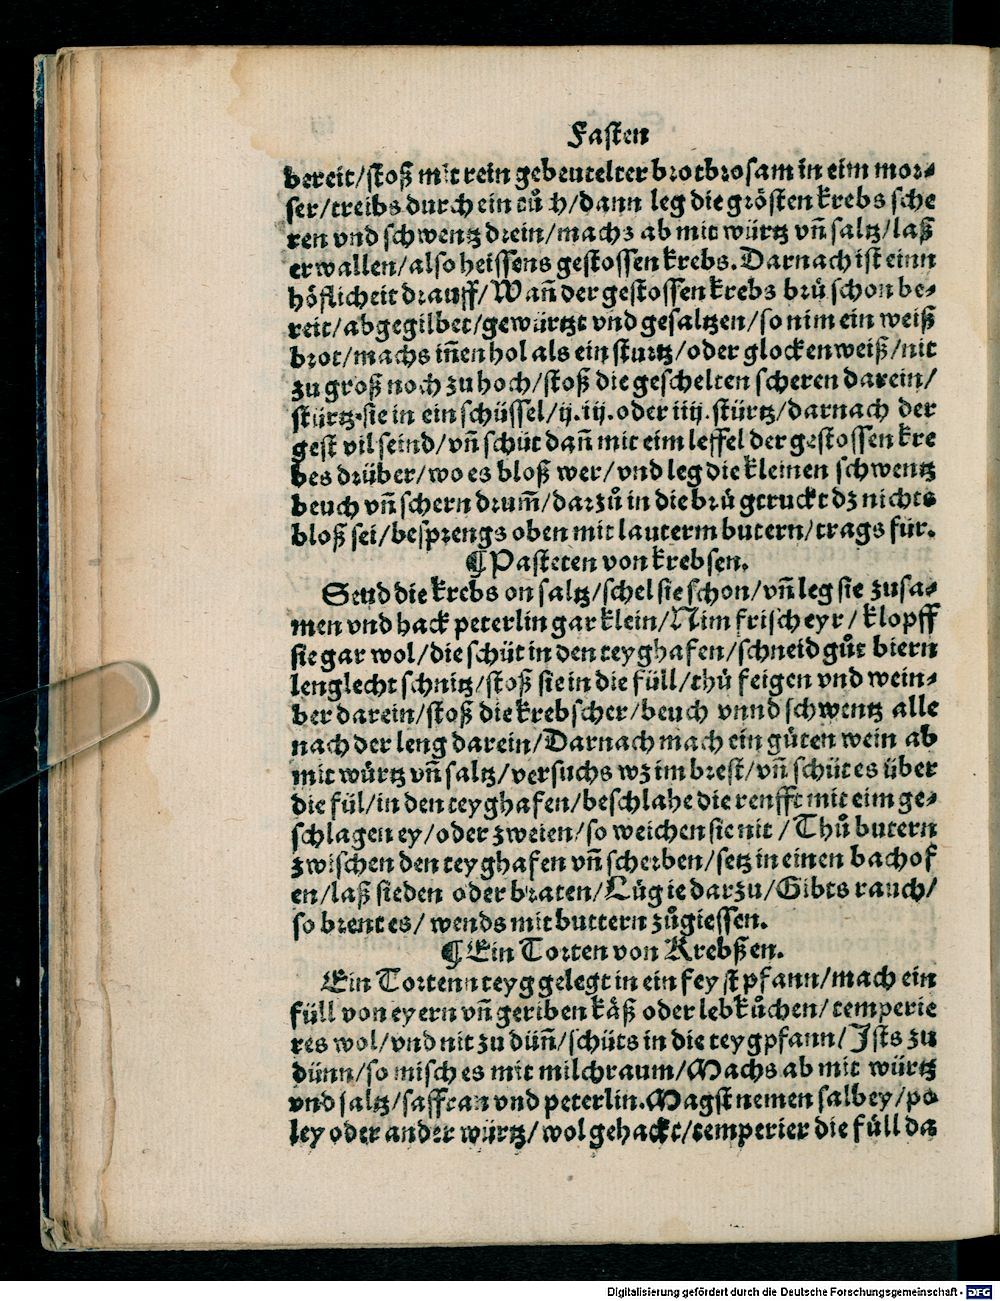 Fasten
bereit/stoß mit rein gebeutelter brotbrosam in eim mor⸗
ser/treibs durch ein tůch/dann leg die grösten krebs sche
ren vnd schwentz drein/machs ab mit würtz vñ saltz/laß
erwallen/also heissens gestossen krebs. Darnach ist einn
höflicheit drauff/Wañ der gestossen krebs brů schon be⸗
reit/abgegilbet/gewürtzt vnd gesaltzen/so nim ein weiß
brot/machs iñen hol als ein sturtz/oder glocken weiß/nit
zu groß noch zu hoch/stoß die geschelten scheren darein/
stürtz sie in ein schüssel/ij.iij.oder iiij.stürtz/darnach der
gest vil seind/vñ schüt dañ mit eim leffel der gestossen kre
bes drüber/wo es bloß wer/vnd leg die kleinen schwentz
beuch vñ schern drum̃/darzů in die brů getruckt dz nichts
bloß sei/besprengs oben mit lauterm butern/trags für.
¶ Pasteten von krebsen.
Seud die krebs on saltz/schel sie schon/vñ leg sie zusa⸗
men vnd hack peterlin gar klein/Nim frisch eyr/klopff
sie gar wol/die schüt in den teyghafen/schneid gůt biern
lenglecht schnitz/stoß sie in die füll/thů feigen vnd wein⸗
ber darein/stoß die krebscher/beuch vnnd schwentz alle
nach der leng darein/Darnach mach ein gůten wein ab
mit würtz vñ saltz/versuchs wz im brest/vñ schüt es über
die fül/in den teyghafen/beschlahe die renfft mit eim ge⸗
schlagen ey/oder zweien/so weichen sie nit/Thů butern
zwischen den teyghafen vñ scherben/setz in einen bachof
en/laß sieden oder braten/Lůg ie darzu/Gibts rauch/
so brent es/wends mit buttern zůgiessen.
¶ Ein Torten von Krebßen.
Ein Tortenn teyg gelegt in ein feyst pfann/mach ein
füll von eyern vñ geriben käß oder lebkůchen/temperie
res wol/vnd nit zu düñ/schüts in die teygpfann/Ists zu
dünn/so misch es mit milchraum/Machs ab mit würtz
vnd saltz/saffran vnd peterlin.Magst nemen salbey/po
ley oder ander würtz/wol gehackt/temperier die füll da
Digitalisierung gefördert durch die Deutsche Forschungsgemeinschaft - DFG